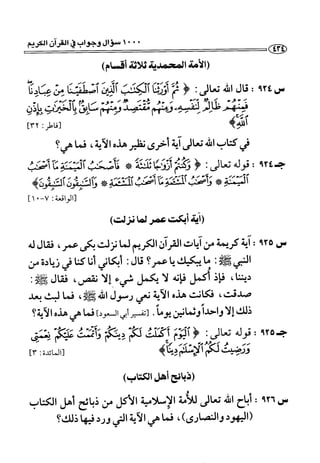 ١٠٠٠ سؤال وجواب في القرآن الكريم
٤٣٤
(الأمة المحمدية ثلاثة أقسام)
س ٩٢٤ : قال الله تعالى: ﴿ ثُمَّ أَوْرَثْنَا الْكِتَٰبَ الَّذِينَ اصْطَفَيْنَا مِنْ عِبَادِنَا
فَمِنْهُمْ ظَالِمٌ لِّنَفْسِهِ، وَمِنْهُم مُّقْتَصِدٌ وَمِنْهُمْ سَابِقٌ بِالْخَيْرَٰتِ بِإِذْنِ
اللَّهِ ﴾ [فاطر: ٣٢]
في كتاب الله تعالى آية أخرى نظير هذه الآية، فما هي؟
جـ ٩٢٤ : قوله تعالى: ﴿ وَكُنتُمْ أَزْوَٰجًا ثَلَٰثَةً * فَأَصْحَٰبُ الْمَيْمَنَةِ مَا أَصْحَٰبُ
الْمَيْمَنَةِ * وَأَصْحَٰبُ الْمَشْـَٔمَةِ مَا أَصْحَٰبُ الْمَشْـَٔمَةِ * وَالسَّٰبِقُونَ السَّٰبِقُونَ ﴾
[الواقعة: ٧-١٠]
(آية أبكت عمر لما نزلت)
س ٩٢٥ : آية كريمة من آيات القرآن الكريم لما نزلت بكى عمر، فقال له
النبي ﷺ : ما يبكيك يا عمر؟ قال: أبكاني أنا كنا في زيادة من
ديننا، فإذا أكمل فإنه لا يكمل شيء إلا نقص، فقال ﷺ :
صدقت، فكانت هذه الآية نعي رسول الله ﷺ، فما لبث بعد
ذلك إلا واحداً وثمانين يوماً. [تفسير أبي السعود] فما هي هذه الآية؟
جـ ٩٢٥ : قوله تعالى: ﴿ الْيَوْمَ أَكْمَلْتُ لَكُمْ دِينَكُمْ وَأَتْمَمْتُ عَلَيْكُمْ نِعْمَتِي
وَرَضِيتُ لَكُمُ الْإِسْلَٰمَ دِينًا ﴾ [المائدة: ٣]
(ذبائح أهل الكتاب)
س ٩٢٦ : أباح الله تعالى للأمة الإسلامية الأكل من ذبائح أهل الكتاب
(اليهود والنصارى)، فما هي الآية التي ورد فيها ذلك؟